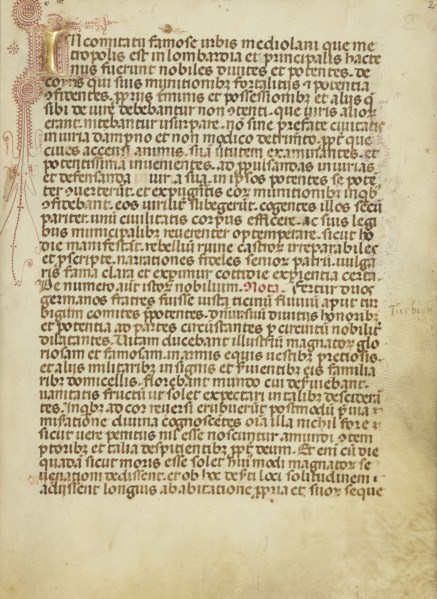 IN comitatu famose urbis mediolani que me
tropolis est in lombardia et principalis hacte
nus fuerunt nobiles divites et potentes. de
qui suis munitionibz fortalitiis 7 potentia
9fidentes. terminis et possessionibz et aliis q
sibi de iure debebantur non 9tenti. que iuris alior
erant. nitebantur usurpare. nō sine prefate civitatis
iniuria dampno et non modico detrimto. ppt que
cives accensi animis. sua virtutem examinantes. et
potentissima invenientes. ad ppulsandas iniurias
et defensanda iura sua. in ipsos potentes se pote
ter 9verterūt. et expugnatis eor munitionibz in qbz
9fidebant. eos viriliter subegerūt. cogentes illos secū
pariter. unū civilitatis corpus efficere. ac suis legi
bus municipalibz reverenter optemperare. sicut ho
die manifestat. rebelliū ruine castror irreparabiles
et pscripte. narrationes fideles senior patrū. vulga
ris fama clara et experimur cottidie experientia certa.
De numero aut istor nobilium. Nota. Fertur duos
germanos fratres fuisse iuxta ticinū fluviū aput tur
bigum comites ppotentes. divitiis honoribz
et potentia ad partes circustantes p circuitū nobilit
dilatantes. Vitam ducebant illustriū magnator glo
riosam et famosam. in armis equis vestibz pretiosis.
et aliis militaribz insignis et servientibz eis familia
ribz domicellis. florebant mundo cui deserviebant.
vanitatis fructū ut solet expectari in talibz desiderā
tes. In qbz ad cor reversi erubuerūt postmodū
miseratiōe divina cognoscētes oīa illa nichil fore
sicut vere penitus nil esse noscuntur a mundi 9tem
ptoribz et talia despitientibz ppt deum. Et eni cū die
quadā sicut moris esse solet hui modi magnator se
venationi dedissent. et ob hoc deserti loci solitudinem
adiissent longius ab habitatione ppria et suor seque
Turbigū
2